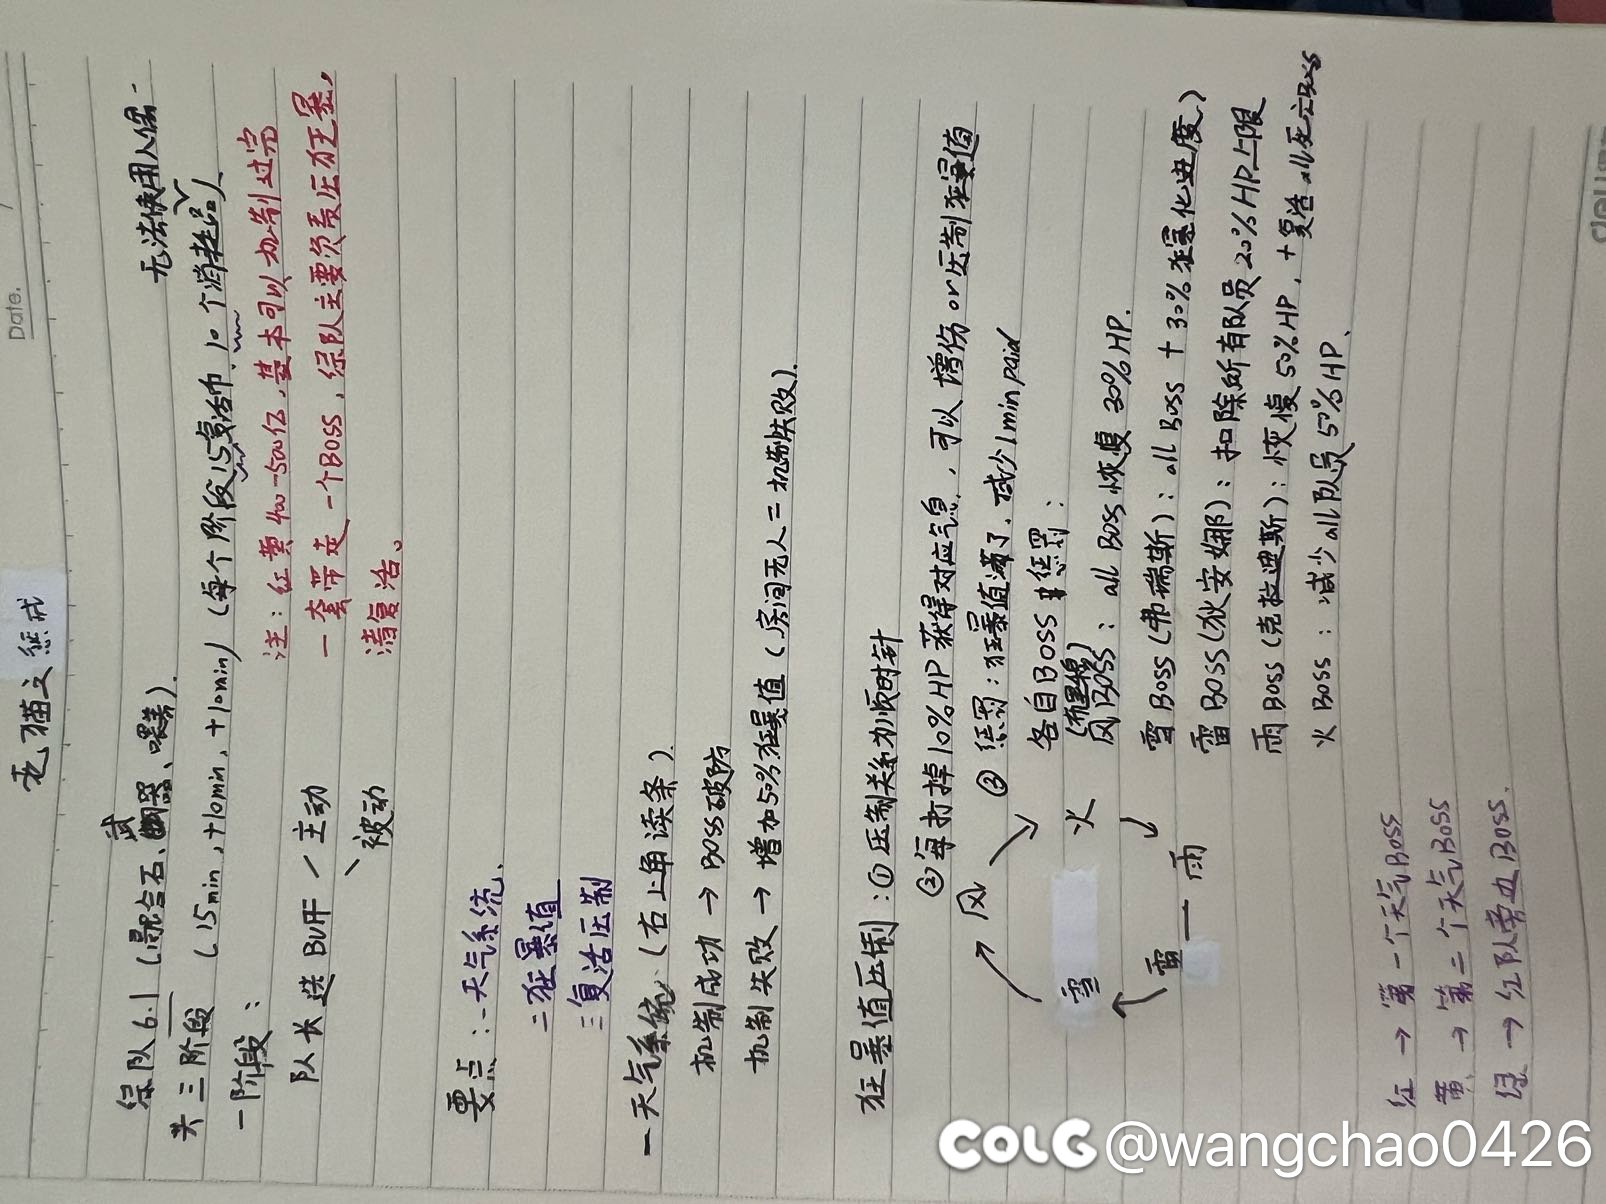 Date.
无猫文惩戒
绿队6.1(混合石、武器、喂养).
无法使用人偶
共三阶段 (15min,+10min,+10min) (每个阶段15复活币,10个消耗品)
一阶段:
注:红黄400-500亿,基本可以机制过完
队长选BUFF 主动
一套带走一个BOSS,绿队主要负责压狂暴,
被动
清复活。
要点:一天气系统、
二狂暴值
三复活压制
一天气系统(右上角读条)
机制成功→BOSS破防
机制失败→增加50%狂暴值(房间无人=机制失败).
狂暴值压制:①压制关系为顺时针
②每打掉10%HP获得对应气息,可以增伤or压制狂暴值
③惩罚:狂暴值满了,减少1min
各自BOSS惩罚:
风BOSS:all BOSS恢复30%HP.
雪BOSS(弗瑞斯):all BOSS+30%狂暴化进度)
雷BOSS(狄安娜):扣除所有队员20%HP上限
雨BOSS(克拉迪斯):恢復50%HP,+复活all死亡BOSS
火BOSS:减少all队员50%HP、
风
火
雨
雷
雪
红→第一个天气BOSS
黄→第二个天气BOSS
绿→红队旁边BOSS.
deli
COLG @wangchao0426